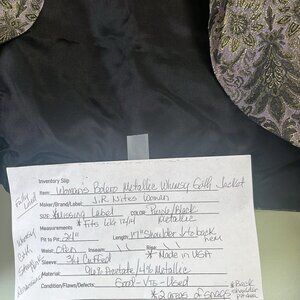 Inventory Slip
Item: Womans Bolero Metallic Whimsy Goth Jacket
Maker/Brand/Label: J.R. Nites Women
SIZE: Missing Label COLOR: Purple/Black Metallic
Measurements * Fits like 12/14
Pit to Pit: 21" Length: 17" Shoulder to back hem
Waist: Open Inseam: Rise:
Sleeve: 3/4 Cuffed * Made in USA
Material: 96% Acetate/4% Metallic
Condition/Flaws/Defects: Good - Vtg - Used
* 2 areas of
* Back shoulder
Whimsy
Goth